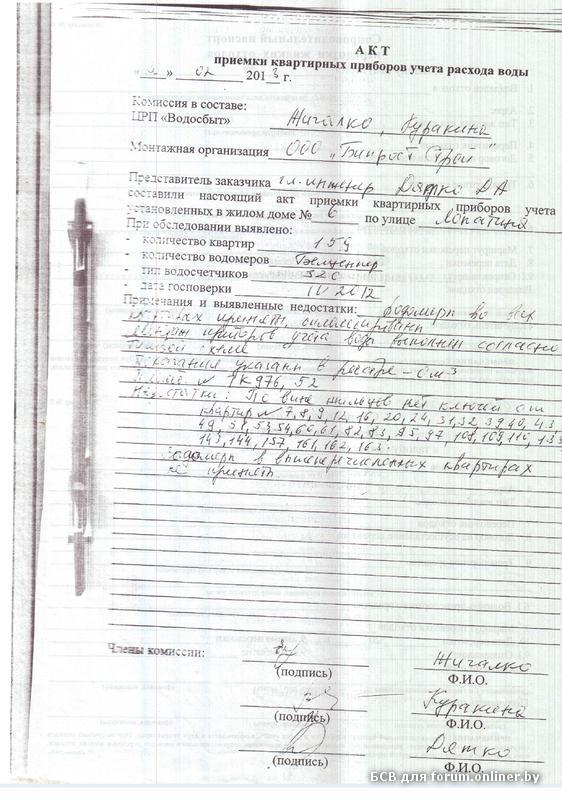 АКТ
приемки квартирных приборов учета расхода воды
« » 02 2013 г.
Комиссия в составе:
ЦРП «Водосбыт» Жигалко, Куракина
Монтажная организация ООО "Бипрост Строй"
Представитель заказчика гл. инженер Дятко ДА
составили настоящий акт приемки квартирных приборов учета
установленных в жилом доме № 6 по улице Лопатина
При обследовании выявлено:
- количество квартир 159
- количество водомеров Белценнер
- тип водосчетчиков 320
- дата госповерки IV 2012
Примечания и выявленные недостатки: Водомеры во всех
квартирах приняты, опломбированы
Монтаж приборов учета воды выполнен согласно
схеме
Показания указаны в реестре - См3
№ 1К976, 52
Недостатки: По вине жильцов нет ключей от
квартир № 7, 8, 9, 12, 16, 20, 24, 31, 32, 39, 40, 43,
49, 51, 53, 54, 60, 61, 82, 83, 95, 97, 108, 109, 110, 133
143, 144, 157, 161, 162, 163.
Водомеры в вышеперечисленных квартирах
не приняты
Члены комиссии:
Жигалко
(подпись) Ф.И.О.
Куракина
(подпись) Ф.И.О.
Дятко
(подпись) Ф.И.О.
БСВ для forum.onliner.by